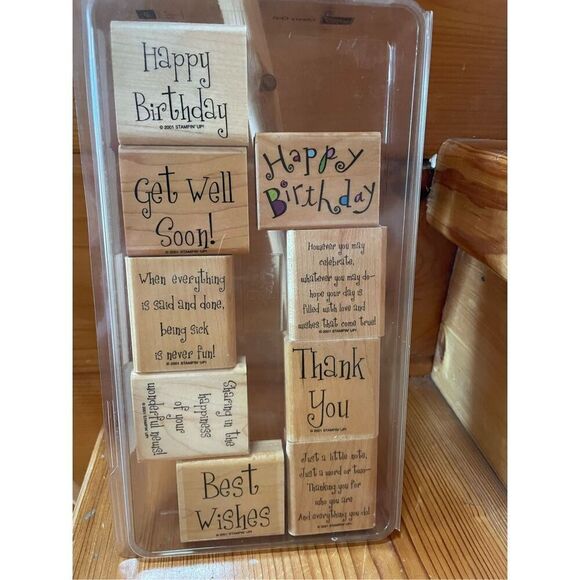 Happy
Birthday
© 2001 STAMPIN' UP!
Get Well
Soon!
© 2001 STAMPIN' UP!
When everything
is said and done,
being sick
is never fun!
© 2001 STAMPIN' UP!
Sharing in the
happiness
of your
wonderful news!
© 2001 STAMPIN' UP!
Best
Wishes
© 2001 STAMPIN' UP!
Happy
Birthday
However you may
celebrate,
whatever you may do—
hope your day is
filled with love and
wishes that come true!
© 2001 STAMPIN' UP!
Thank
You
© 2001 STAMPIN' UP!
Just a little note,
Just a word or two—
Thanking you for
who you are
And everything you do!
© 2001 STAMPIN' UP!